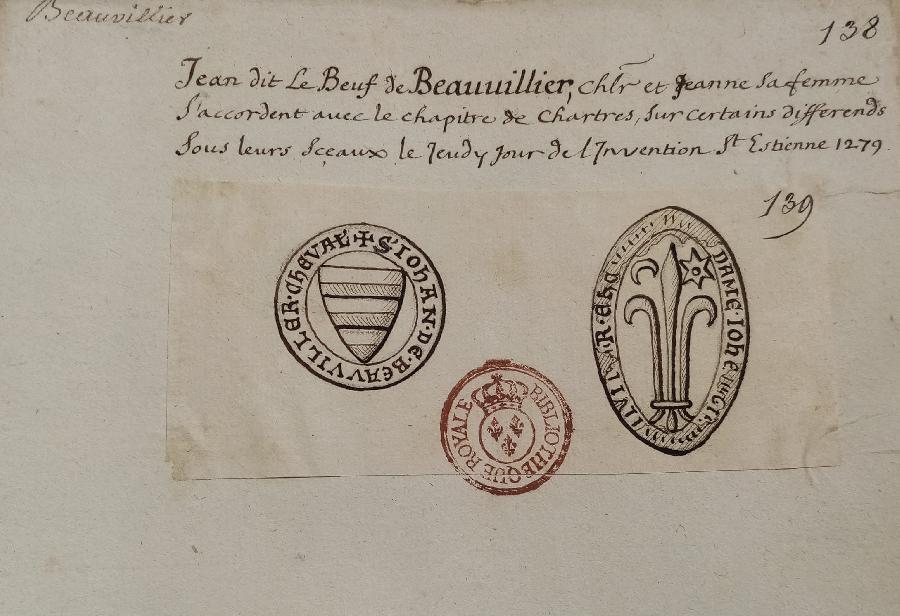 Beauvillier
138
Jean dit Le Beuf de Beauuillier, Chlr et Jeanne sa femme
S'accordent avec le chapitre de Chartres, sur certains differends
Sous leurs Sceaux le Jeudy Jour de l'Invention St Estienne 1279.
139
✝ S' IOHAN · DE · BEAVVILLER · CHEVAL'
DAME · IOHE
BIBLIOTHEQUE ROYALE